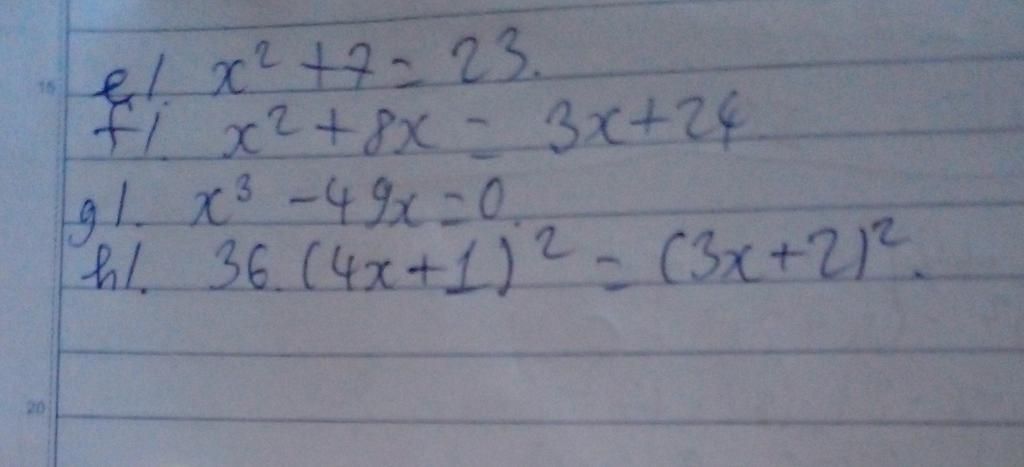 e/. x² + 7 = 23.
f/. x² + 8x = 3x + 24
g/. x³ - 49x = 0.
h/. 36.(4x + 1)² = (3x + 2)².
15
20